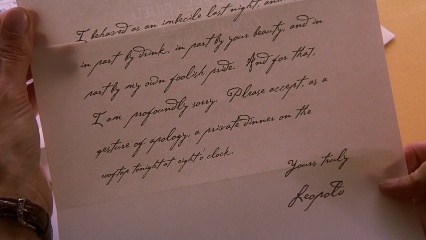 I behaved as an imbecile last night, and
in part by drink, in part by your beauty, and in
part by my own foolish pride. And for that,
I am profoundly sorry. Please accept, as a
gesture of apology, a private dinner on the
rooftop tonight at eight o'clock.
Yours truly
Leopold